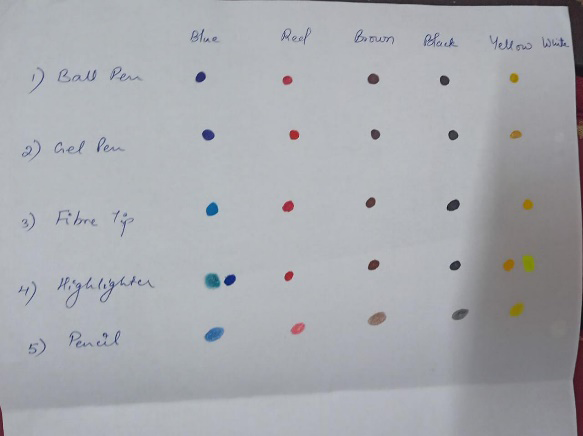 Blue Red Brown Black Yellow White
1) Ball Pen
2) Gel Pen
3) Fibre Tip
4) Highlighter
5) Pencil